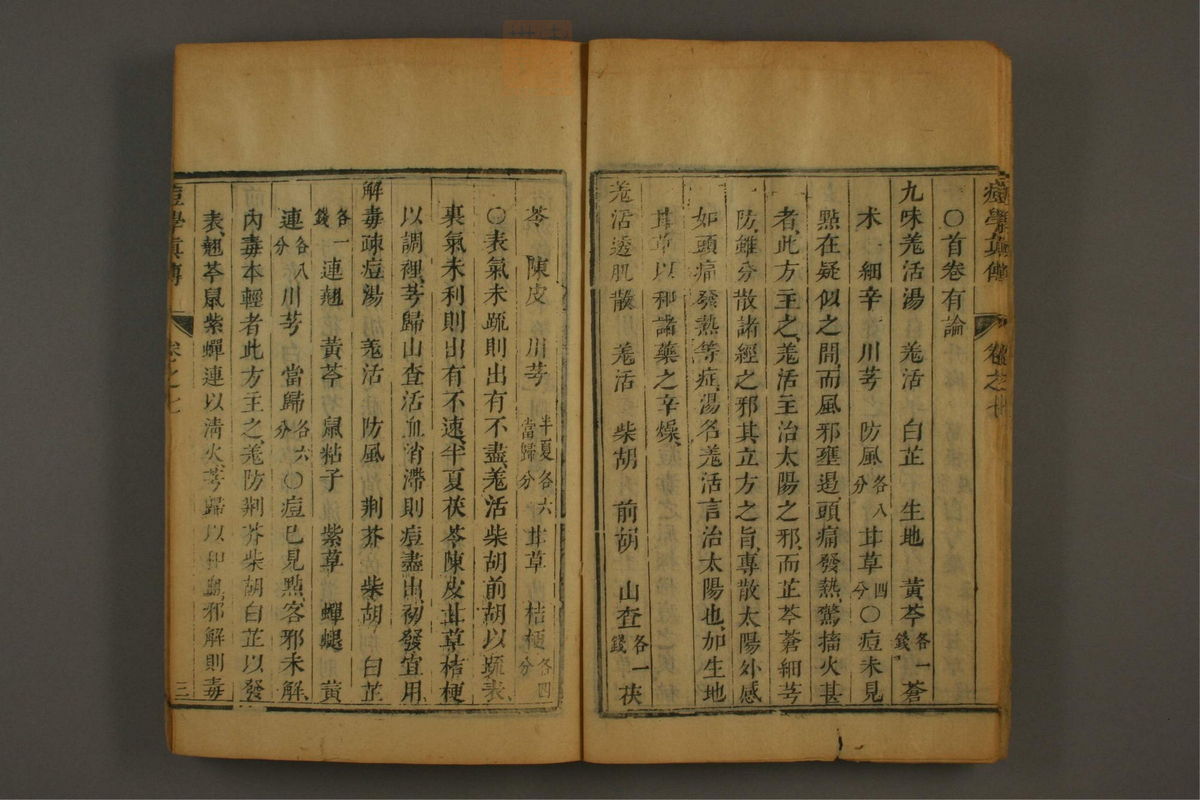 痘學真傳 卷之七
○首卷有論
九味羌活湯 羌活 白芷 生地 黃芩各一錢 蒼
朮 細辛 川芎 防風各八分 甘草四分○痘未見
點在疑似之間而風邪壅遏頭痛發熱驚搐火甚
者此方主之羌活主治太陽之邪而芷芩蒼細芎
防雖分散諸經之邪其立方之旨專散太陽外感
如頭痛發熱等症湯名羌活言治太陽也加生地
甘草以和諸藥之辛燥
羌活透肌散 羌活 柴胡 前胡 山查各一錢 茯
苓 陳皮 川芎 半夏 當歸各六分 甘草 桔梗各四分
○表氣未疏則出有不盡羌活柴胡前胡以疏表
裏氣未利則出有不速半夏茯苓陳皮甘草桔梗
以調裡芎歸山查活血消滯則痘盡出初發宜用
解毒疎痘湯 羌活 防風 荆芥 柴胡 白芷
各一錢 連翹 黃芩 鼠粘子 紫草 蟬蜕 黃
連各八分 川芎 當歸各六分○痘已見點客邪未解
內毒本輕者此方主之羌防荆芥柴胡白芷以發
表翹芩鼠紫蟬連以清火芎歸以和血邪解則毒
痘學真傳 卷之七 三